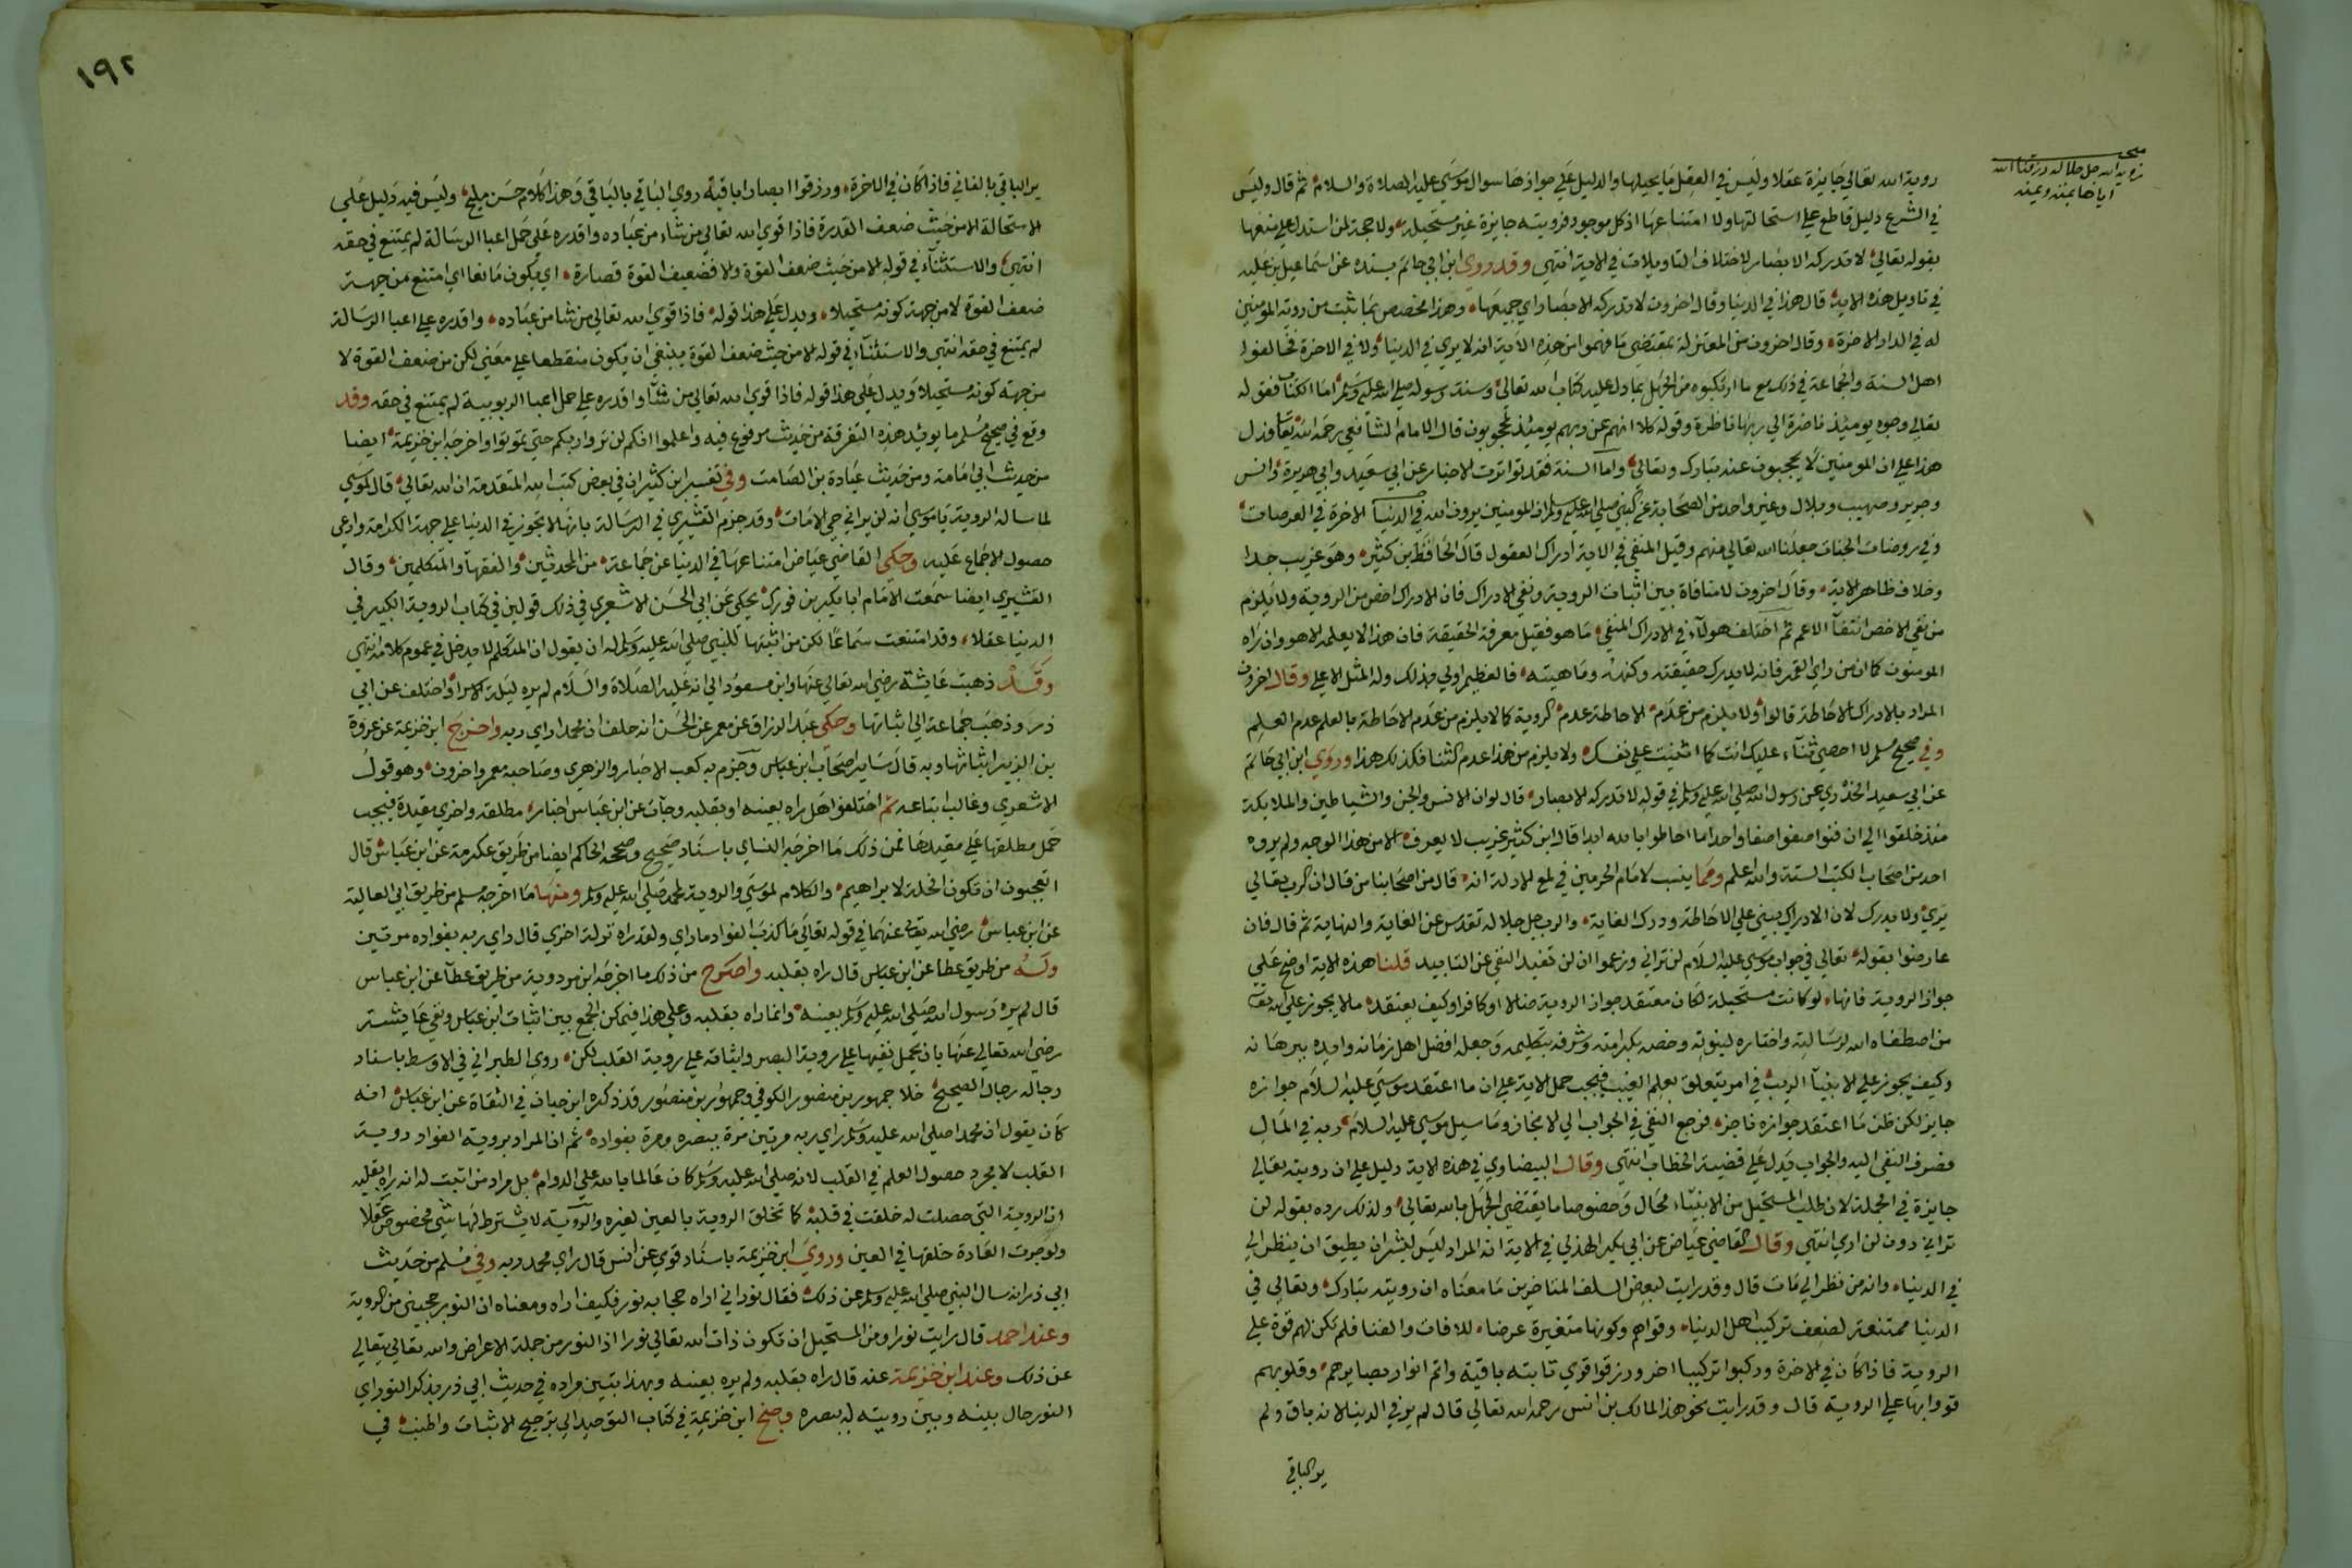 مبحث
رؤية الله جل جلاله ورزقنا الله
اياها بمنه ويمنه
روية الله تعالي جايزة عقلا وليس في العقل ما يحيلها والدليل علي جوازها سوال موسي عليه الصلاة والسلام ثم قال وليس
في الشرع دليل قاطع علي استحالتها ولا امتناعها اذ كل موجود فرويته جايزة غير مستحيلة ولا حجة لمن استدل علي منعها
بقوله تعالي لا تدركه الابصار لاختلاف التاويلات في الاية انتهي وقد روي ابن ابي حاتم بسنده عن اسماعيل بن علية
في تاويل هذه الاية قال هذا في الدنيا وقال اخرون لا تدركه الابصار اي جميعها وهذا مخصص بما ثبت من روية المومنين
له في الدار الاخرة وقال اخرون من المعتزلة بمقتضي ما فهموا من هذه الاية انه لا يري في الدنيا ولا في الاخرة فخالفوا
اهل السنة والجماعة في ذلك مع ما ارتكبوه من الجهل بما دل عليه كتاب الله تعالي وسنة رسوله صلي الله عليه وسلم اما الكتاب فقوله
تعالي وجوه يوميذ ناضرة الي ربها ناظرة وقوله كلا انهم عن ربهم يوميذ لمحجوبون قال الامام الشافعي رحمه الله تعالى فدل
هذا علي ان المومنين لا يحجبون عنه تبارك وتعالي واما السنة فقد تواترت الاخبار عن ابي سعيد وابي هريرة وانس
وجرير وصهيب وبلال وغير واحد من الصحابة عن النبي صلي الله عليه وسلم ان المومنين يرون الله في الدار الاخرة في العرصات
وفي روضات الجنات جعلنا الله تعالي منهم وقيل المنفي في الاية ادراك العقول قال الحافظ بن كثير وهو غريب جدا
وخلاف ظاهر الاية وقال اخرون لا منافاة بين اثبات الروية ونفي الادراك فان الادراك اخص من الروية ولا يلزم
من نفي الاخص انتفآ الاعم ثم اختلف هولآء في الادراك المنفي ما هو فقيل معرفة الحقيقة فان هذا لا يعلمه الا هو وان رآه
المومنون كما ان من راي القمر فانه لا يدرك حقيقته وكنهه وماهيته فالعظيم اولي بذلك وله المثل الاعلي وقال اخرون
المراد بالادراك الاحاطة قالوا ولا يلزم من عدم الاحاطة عدم الروية كما لا يلزم من عدم الاحاطة بالعلم عدم العلم
وفي صحيح مسلم لا احصي ثنآء عليك انت كما اثنيت علي نفسك ولا يلزم من هذا عدم الثنا فكذلك هذا وروي ابن ابي حاتم
عن ابي سعيد الخدري عن رسول الله صلي الله عليه وسلم في قوله لا تدركه الابصار قال لو ان الانس والجن والشياطين والملايكة
منذ خلقوا الي ان فنوا صفوا صفا واحدا ما احاطوا بالله ابدا قال ابن كثير غريب لا يعرف الا من هذا الوجه ولم يروه
احد من اصحاب الكتب الستة والله اعلم ومما ينسب لامام الحرمين في لمع الادلة انه قال من اصحابنا من قال ان الرب تعالي
يري ولا يدرك لان الادراك يبني علي الاحاطة ودرك الغاية والرب جل جلاله تقدس عن الغاية والنهاية ثم قال فان
عارضوا بقوله تعالي في جواب موسي عليه السلام لن تراني وزعموا ان لن تفيد النفي عن التابيد قلنا هذه الاية اوضح علي
جواز الروية فانها لو كانت مستحيلة لكان معتقد جواز الروية ضالا او كافرا وكيف يعتقد ما لا يجوز علي الله تعا
من اصطفاه الله لرسالته واختاره لنبوته وخصه بكرامته وشرفه بتكليمه وجعله افضل اهل زمانه وايده ببرهانه
وكيف يجوز علي الانبيآ الريب في امر يتعلق بعلم الغيب فيجب حمل الاية علي ان ما اعتقد موسي عليه السلام جوازه
جايز لكن ظن ما اعتقد جوازه ناجزه فرجع النفي في الجواب الي الانجاز وما سيل موسي عليه السلام ربه في المال
فصرف النفي اليه والجواب يدل علي قضية الخطاب انتهي وقال البيضاوي في هذه الاية دليل علي ان رويته تعالي
جايزة في الجملة لان طلب المستحيل من الانبيآء محال وخصوصا ما يقتضي الجهل بالله تعالي ولذلك رده بقوله لن
تراني دون لن اري انتهي وقال القاضي عياض عن ابي بكر الهذلي في الاية ان المراد ليس لبشر ان يطيق ان ينظر الي
في الدنيا وانه من نظر الي مات قال وقد رايت لبعض السلف المتاخرين ما معناه ان رويته تبارك وتعالي في
الدنيا ممتنعة لضعف تركيب اهل الدنيا وقواهم وكونها متغيرة عرضا للافات والفنا فلم تكن لهم قوة علي
الروية فاذا كان في الاخرة وركبوا تركيبا اخر ورزقوا قوي ثابتة باقية واتم انوار بصايرهم وقلوبهم
قووا بها علي الروية قال وقد رايت نحو هذا لمالك بن انس رحمه الله تعالي قال لم ير في الدنيا لانه باق ولم
ير الباقي
١٩٢
ير الباقي بالفاني فاذا كان في الاخرة ورزقوا ابصارا باقية روي الباقي بالباقي وهذا كلام حسن مليح وليس فيه دليل علي
الاستحالة الا من حيث ضعف القدرة فاذا قوي الله تعالي من شاء من عباده واقدره علي حمل اعبا الرسالة لم يمتنع في حقه
انتهي والاستثنآء في قوله الا من حيث ضعف القوة والا فضعيف القوة قصارة اي يكون مانعا اي امتنع من جهة
ضعف القوة لا من جهة كونه مستحيلا ويدل علي هذا قوله فاذا قوي الله تعالي من شا من عباده واقدره علي اعبا الرسالة
لم يمتنع في حقه انتهي والاستثنآء في قوله الا من حيث ضعف القوة ينبغي ان يكون منقطعا علي معني لكن من ضعف القوة لا
من جهة كونه مستحيلا ويدل علي هذا قوله فاذا قوي الله تعالي من شآ واقدره علي حمل اعبا الربوبية لم يمتنع في حقه وقد
وقع في صحيح مسلم ما يويد هذه التفرقة من حديث مرفوع فيه واعلموا انكم لن تروا ربكم حتي تموتوا واخرجه ابن خزيمة ايضا
من حديث ابي امامة ومن حديث عبادة بن الصامت وفي تفسير ابن كثير ان في بعض كتب الله المتقدمة ان الله تعالي قال لموسي
لما ساله الروية يا موسي انه لن يراني حي الا مات وقد جزم القشيري في الرسالة بانها لا تجوز في الدنيا علي جهة الكرامة وادعي
حصول الاجماع عليه وحكي القاضي عياض امتناعها في الدنيا عن جماعة من المحدثين والفقهآ والمتكلمين وقال
القشيري ايضا سمعت الامام ابا بكر بن فورك يحكي عن ابي الحسن الاشعري في ذلك قولين في كتاب الروية الكبير في
الدنيا عقلا وقد امتنعت سماعا لكن من اثبتها للنبي صلي الله عليه وسلم له ان يقول ان المتكلم لا يدخل في عموم كلامه انتهي
وقد ذهبت عايشة رضي الله تعالي عنها وابن مسعود الي انه عليه الصلاة والسلام لم يره ليلة الاسرا واختلف عن ابي
ذر وذهب جماعة الي اثباتها وحكي عبد الرزاق عن معمر عن الحسن انه حلف ان محمدا راي ربه واخرج ابن خزيمة عن عروة
بن الزبير اثباتها وبه قال ساير اصحاب ابن عباس وجزم به كعب الاحبار والزهري وصاحبه معمر واخرون وهو قول
الاشعري وغالب اتباعه ثم اختلفوا هل راه بعينه او بقلبه وجآت عن ابن عباس اخبار مطلقة واخري مقيدة فيجب
حمل مطلقها علي مقيدها فمن ذلك ما اخرجه النساي باسناد صحيح وصححه الحاكم ايضا من طريق عكرمة عن ابن عباس قال
اتعجبون ان تكون الخلة لابراهيم والكلام لموسي والروية لمحمد صلي الله عليه وسلم ومنها ما اخرجه مسلم من طريق ابي العالية
عن ابن عباس رضي الله تعالى عنهما في قوله تعالي ما كذب الفواد ما راي ولقد راه نزلة اخري قال راي ربه بفواده مرتين
وله من طريق عطا عن ابن عباس قال راه بقلبه واصرح من ذلك ما اخرجه ابن مردوية من طريق عطآ عن ابن عباس
قال لم يره رسول الله صلي الله عليه وسلم بعينه وانما راه بقلبه وعلي هذا فيمكن الجمع بين اثبات ابن عباس ونفي عايشة
رضي الله تعالي عنها بان يحمل نفيها علي روية البصر واثباته علي روية القلب لكن روي الطبراني في الاوسط باسناد
رجاله رجال الصحيح خلا جمهور بن منصور الكوفي وجمهور بن منصور قد ذكره ابن حبان في الثقاة عن ابن عباس انه
كان يقول ان محمدا صلي الله عليه وسلم راي ربه مرتين مرة ببصره ومرة بفواده ثم ان المراد بروية الفواد روية
القلب لا مجرد حصول العلم في القلب لانه صلي الله عليه وسلم كان عالما بالله علي الدوام بل مراد من اثبت له انه راه بقلبه
ان الروية التي حصلت له خلقت في قلبه كما تخلق الروية بالعين لغيره والروية لا يشترط لها شي مخصوص عقلا
ولو جرت العادة خلقها في العين وروي ابن خزيمة باسناد قوي عن انس قال راي محمد ربه وفي مسلم من حديث
ابي ذر انه سال النبي صلي الله عليه وسلم عن ذلك فقال نور اني اراه حجابه نور فكيف اراه ومعناه ان النور حجبني من الروية
وعند احمد قال رايت نورا ومن المستحيل ان تكون ذات الله تعالي نورا اذ النور من جملة الاعراض والله تعالي يتعالي
عن ذلك وعند ابن خزيمة عنه قال راه بقلبه ولم يره بعينه وبهذا يتبين مراده في حديث ابي ذر بذكر النور اي
النور حال بينه وبين رويته له ببصره وجنح ابن خزيمة في كتاب التوحيد الي ترجيح الاثبات واطنب في